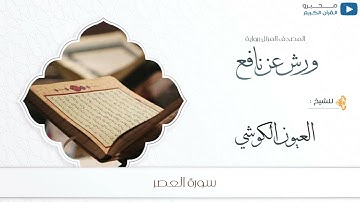 محبرو
القرآن الكريم
المصحف المرتل برواية
ورش عن نافع
للشيخ :
العيون الكوشي
سورة العصر